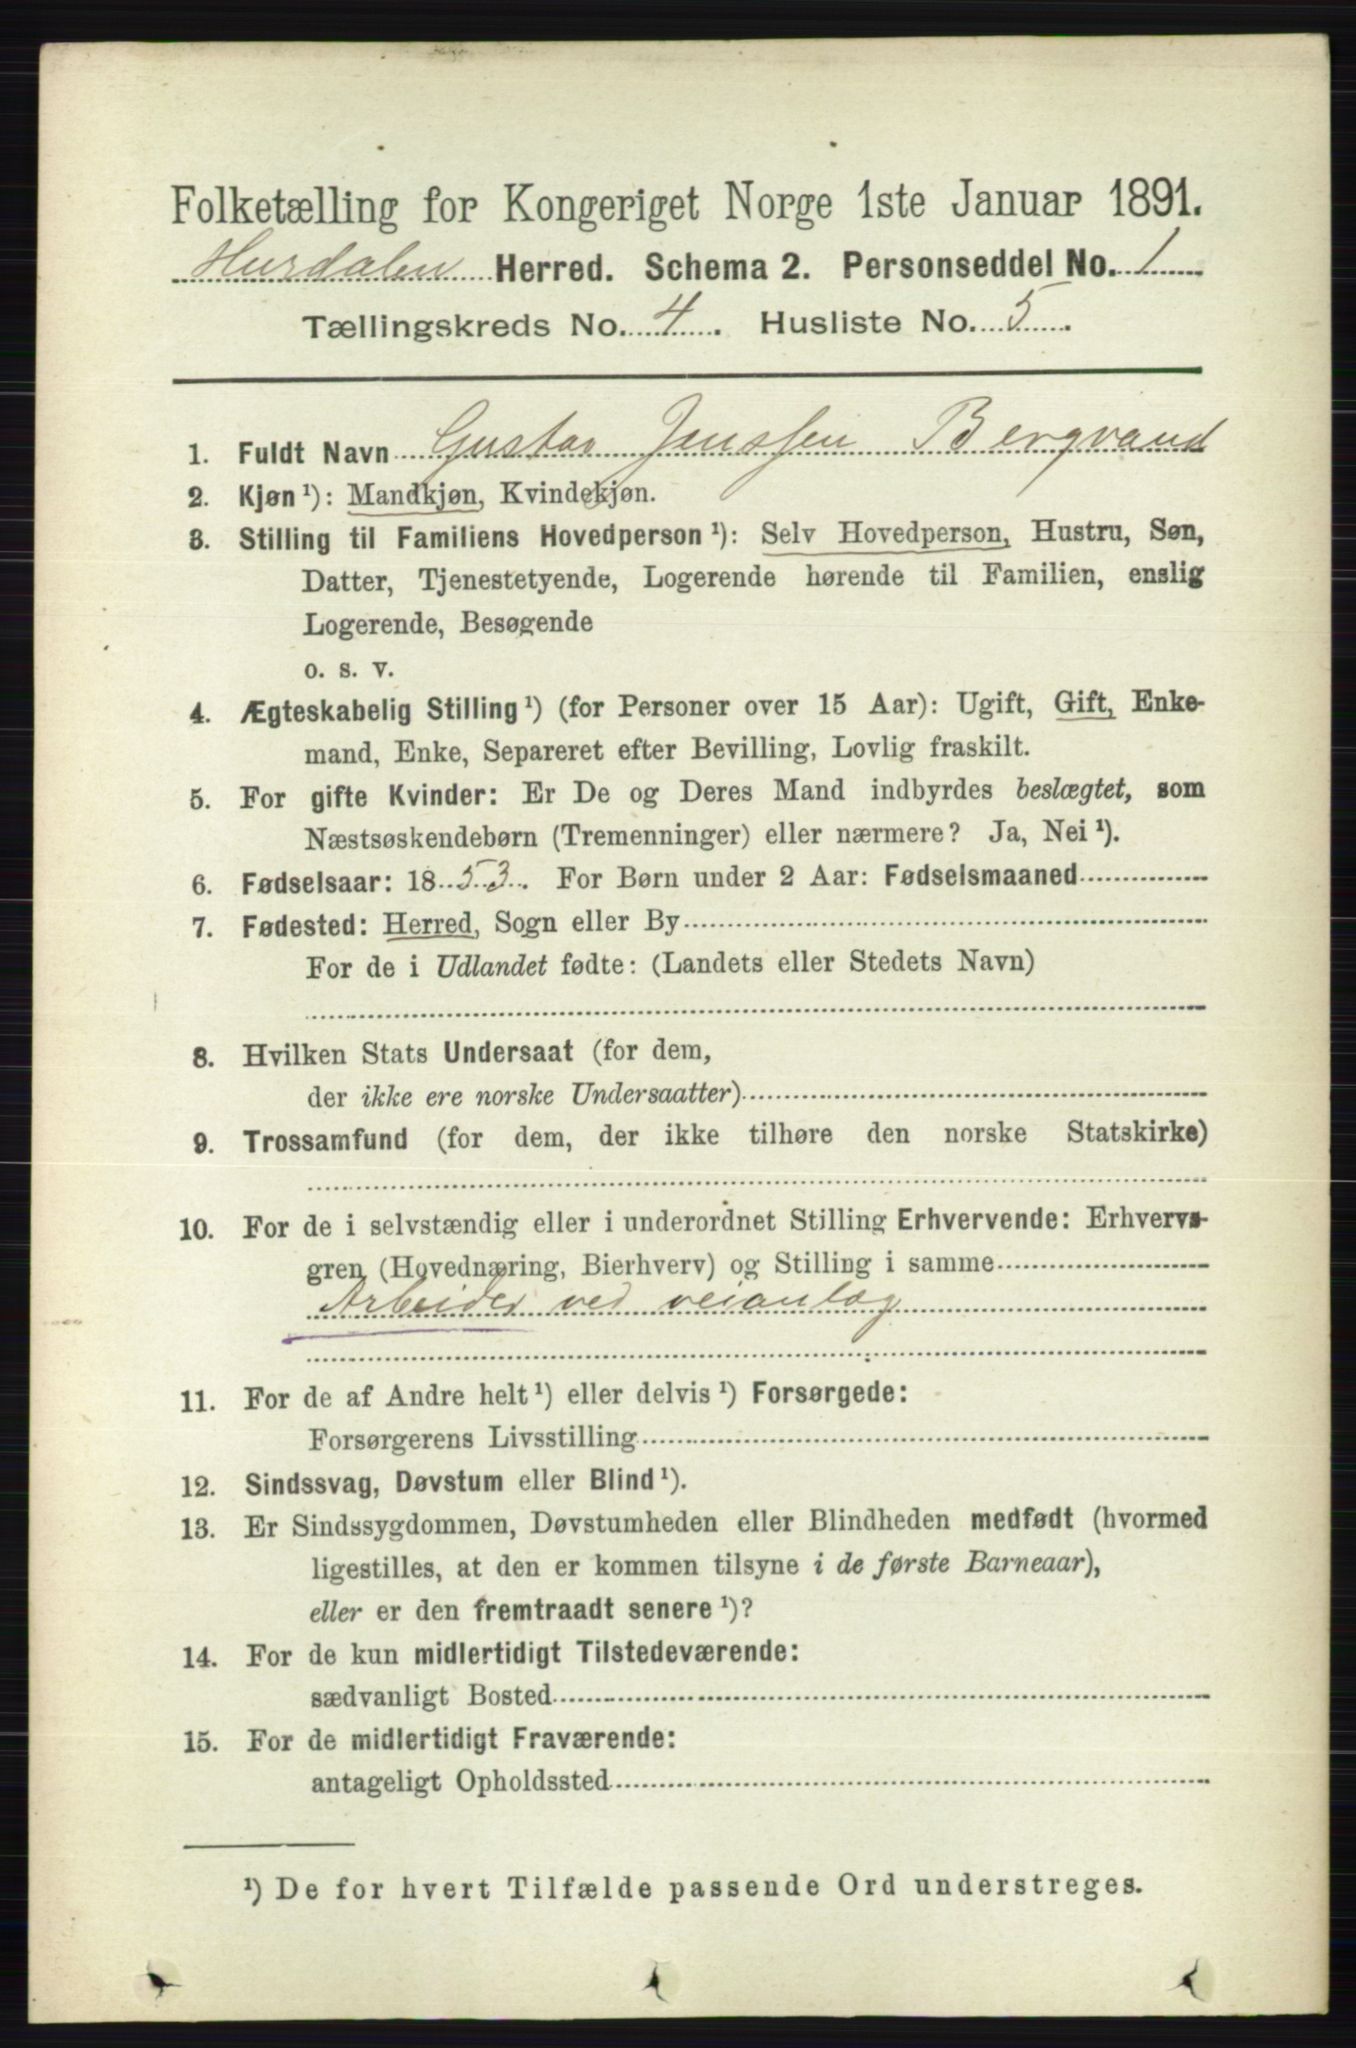 Folketælling for Kongeriget Norge 1ste Januar 1891.
Hurdalen Herred. Schema 2. Personseddel No. 1
Tællingskreds No. 4. Husliste No. 5.
1. Fuldt Navn Gustav Janssen Bergvand
2. Kjøn¹): Mandkjøn, Kvindekjøn.
3. Stilling til Familiens Hovedperson¹): Selv Hovedperson, Hustru, Søn,
Datter, Tjenestetyende, Logerende hørende til Familien, enslig
Logerende, Besøgende
o. s. v.
4. Ægteskabelig Stilling¹) (for Personer over 15 Aar): Ugift, Gift, Enke-
mand, Enke, Separeret efter Bevilling, Lovlig fraskilt.
5. For gifte Kvinder: Er De og Deres Mand indbyrdes beslægtet, som
Næstsøskendebørn (Tremenninger) eller nærmere? Ja, Nei¹).
6. Fødselsaar: 1853. For Børn under 2 Aar: Fødselsmaaned
7. Fødested: Herred, Sogn eller By
For de i Udlandet fødte: (Landets eller Stedets Navn)
8. Hvilken Stats Undersaat (for dem,
der ikke ere norske Undersaatter)
9. Trossamfund (for dem, der ikke tilhøre den norske Statskirke)
10. For de i selvstændig eller i underordnet Stilling Erhvervende: Erhvervs-
gren (Hovednæring, Bierhverv) og Stilling i samme
Arbeider ved veianlæg
11. For de af Andre helt¹) eller delvis¹) Forsørgede:
Forsørgerens Livsstilling
12. Sindssvag, Døvstum eller Blind¹).
13. Er Sindssygdommen, Døvstumheden eller Blindheden medfødt (hvormed
ligestilles, at den er kommen tilsyne i de første Barneaar),
eller er den fremtraadt senere¹)?
14. For de kun midlertidigt Tilstedeværende:
sædvanligt Bosted
15. For de midlertidigt Fraværende:
antageligt Opholdssted
¹) De for hvert Tilfælde passende Ord understreges.